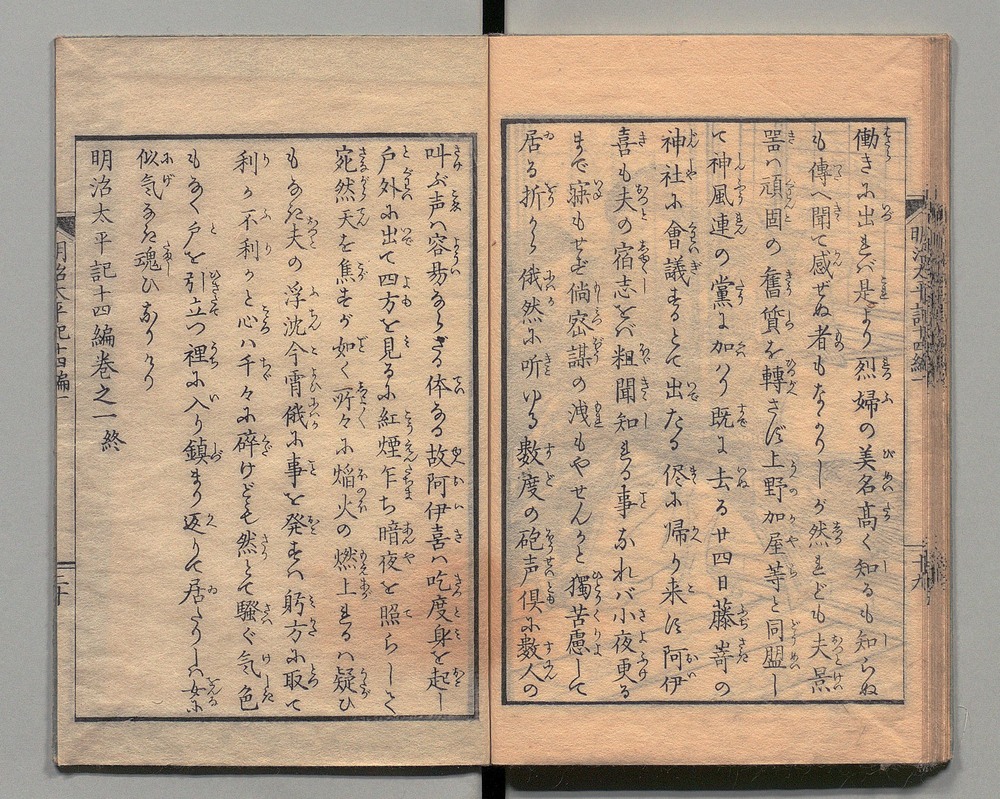 働きに出まバ是より烈婦の美名高く知るも知らぬ
も傳へ聞て感ぜぬ者もなかりしが然れども夫景
噐ハ頑固の奮質を轉さず上野加屋等と同盟し
て神風連の黨に加ハり既に去る廿四日藤嵜の
神社に會議するとて出たる侭に帰り来ず阿伊
喜も夫の宿志をバ粗聞知れる事なれバ小夜更る
まで寐もせず倘密謀の洩もやせんかと獨苦慮して
居る折から俄然に听ゆる数度の砲声倶に数人の
叫ぶ声ハ容易ならざる体なる故阿伊喜ハ吃度身を起し
戸外に出て四方を見るに紅煙乍ち暗夜を照らして
宛然天を焦すが如く所々に焔火の燃上まるハ疑ひ
もなき夫の浮沈今霄俄に事を発すハ躬方に取て
利か不利かと心ハ千々に碎けども然とて騒ぐ気色
もなく戸を引立つ裡に入り鎮まり返りて居たりしハ女に
似気なき魂ひなりけり
明治太平記十四編巻之一終
明治太平記十四編一
二十
明治太平記十四編一
十九